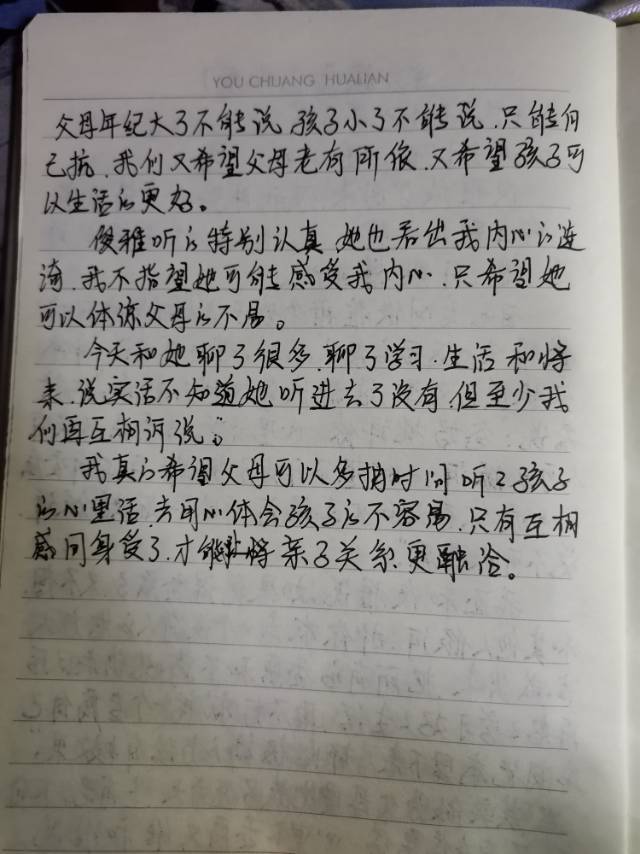 YOU CHUANG HUALIAN
父母年纪大了不能说,孩子小了不能说,只能自
己抗,我们又希望父母老有所依,又希望孩子可
以生活的更好。
俊雅听的特别认真,她也看出我内心的涟
漪,我不指望她可能感受我内心,只希望她
可以体谅父母的不易。
今天和她聊了很多,聊了学习,生活和将
来,说实话不知道她听进去了没有,但至少我
们再互相诉说。
我真的希望父母可以多抽时间听听孩子
的心里话,去用心体会孩子的不容易,只有互相
感同身受了,才能让将亲子关系更融洽。